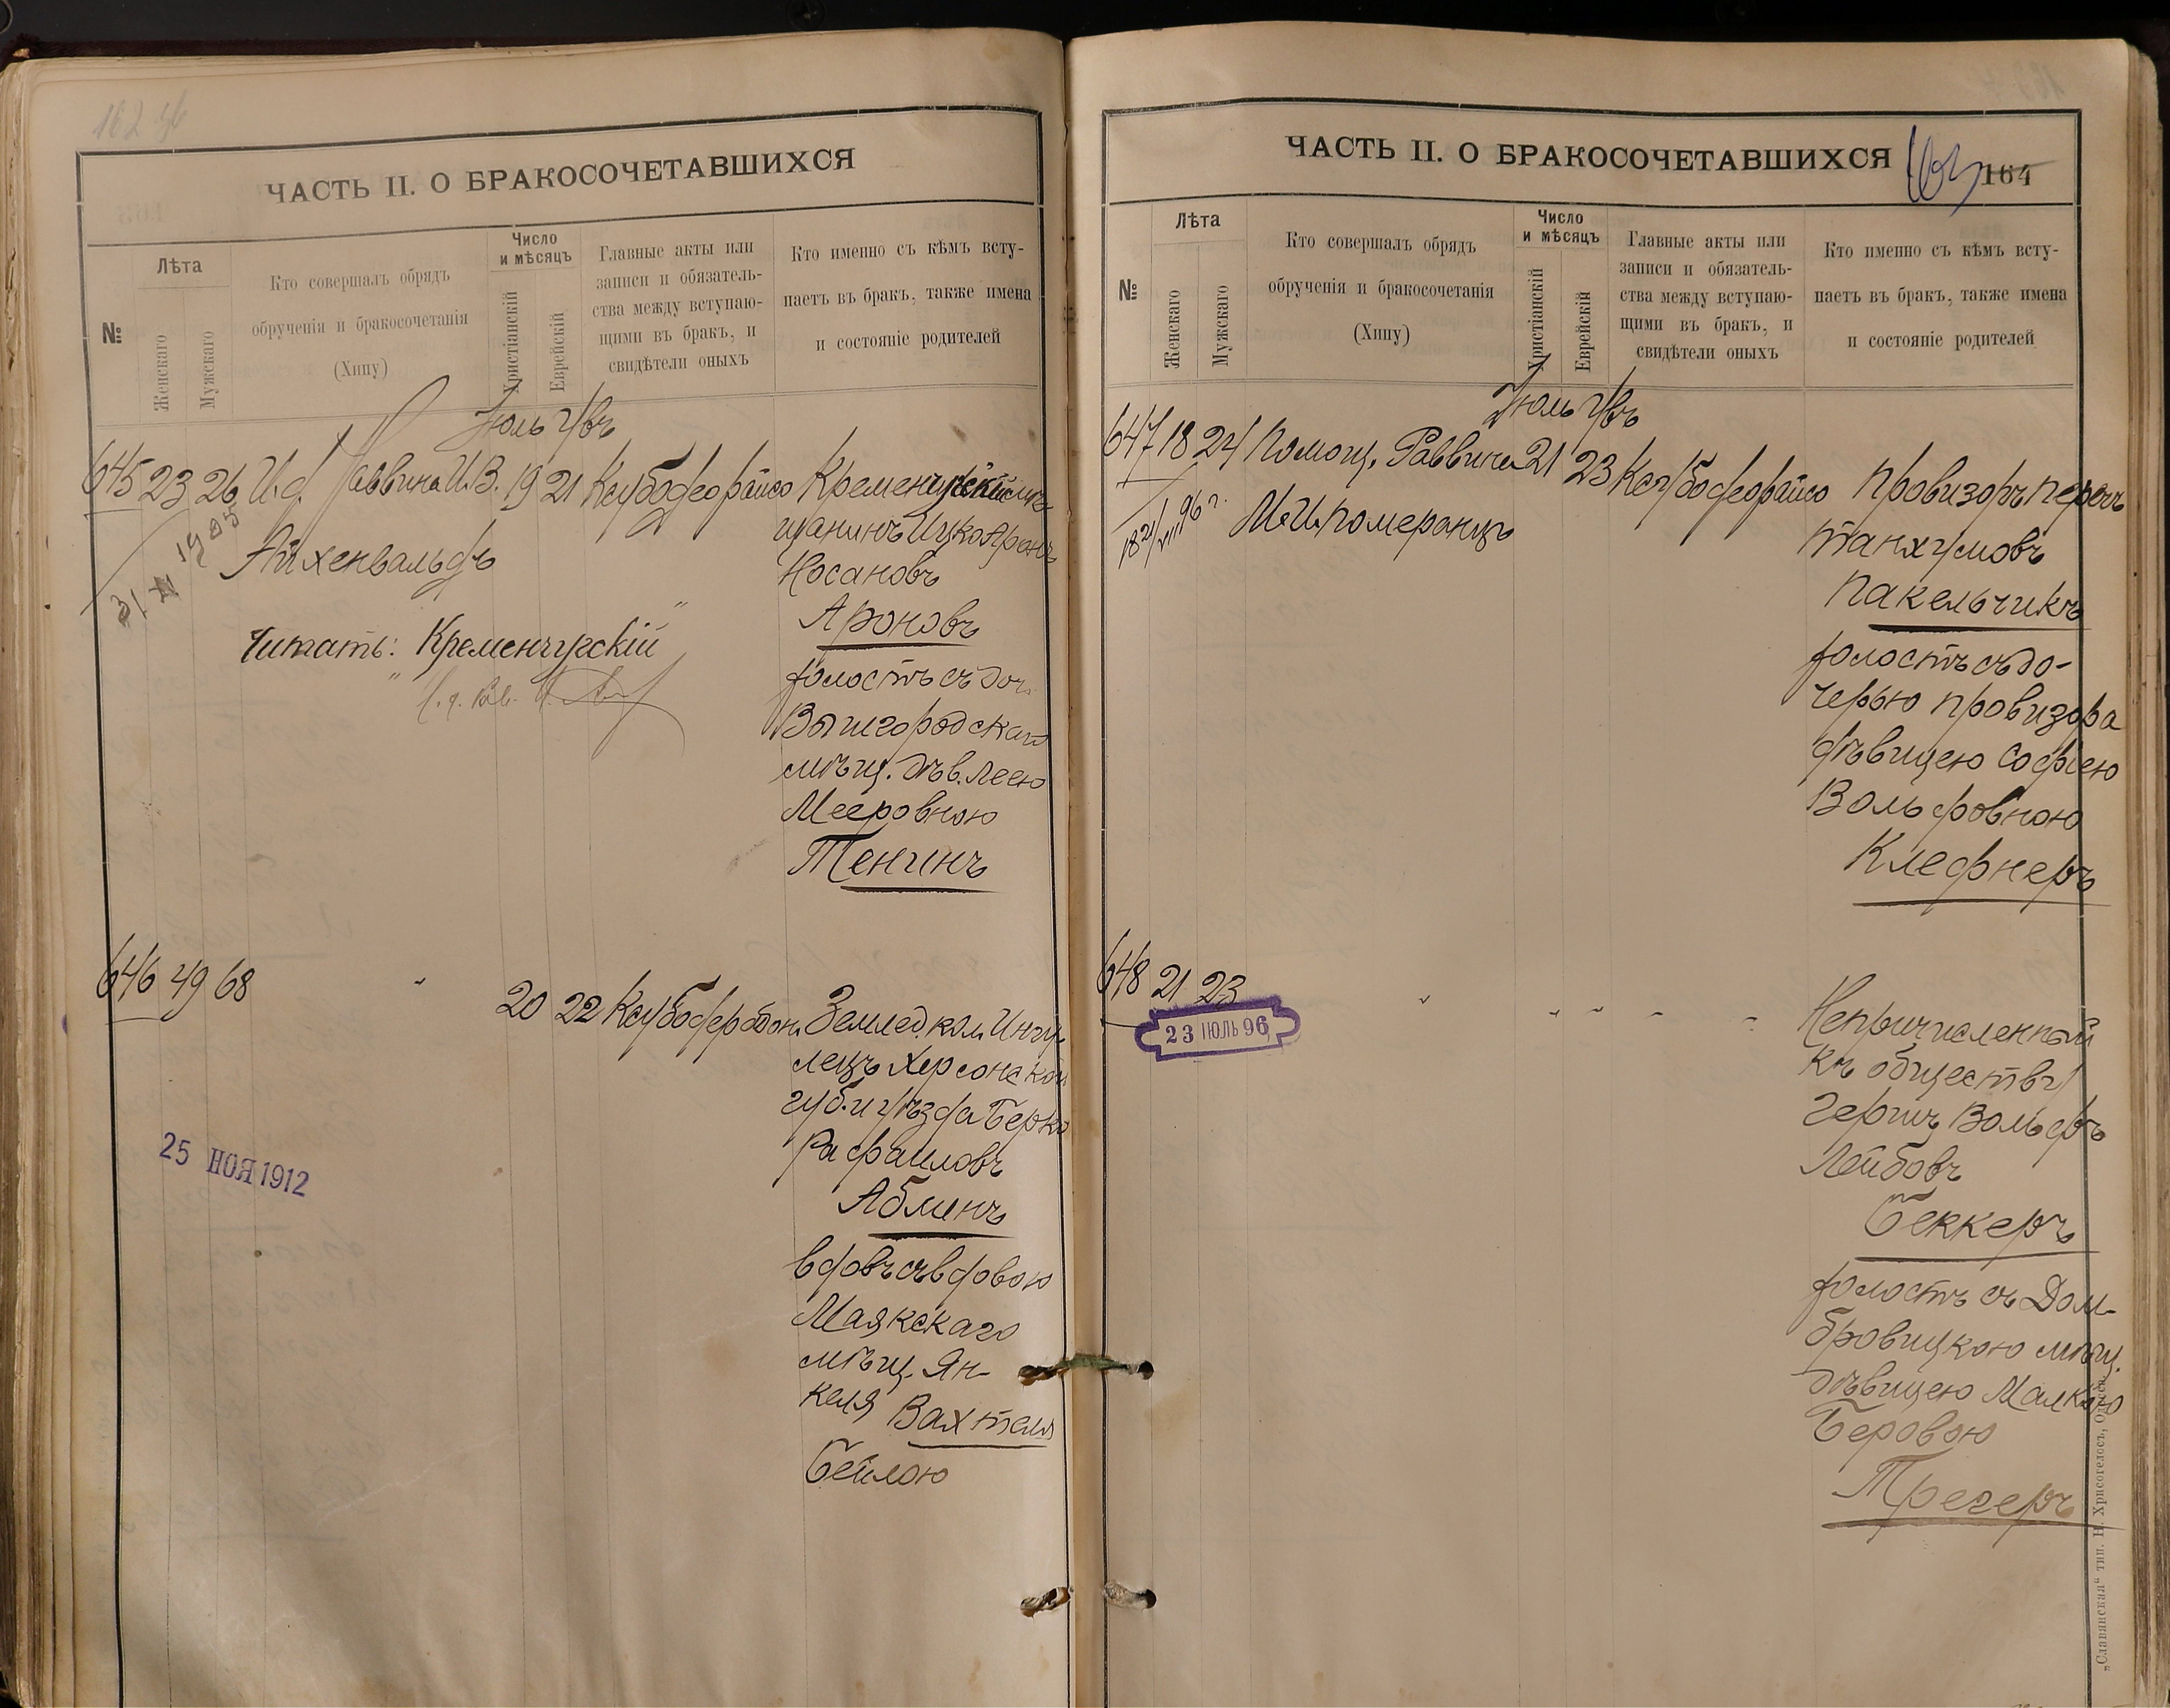 162 об
ЧАСТЬ II. О БРАКОСОЧЕТАВШИХСЯ
№
Лѣта
Женскаго
Мужскаго
Кто совершалъ обрядъ
обрученія и бракосочетанія
(Хипу)
Число
и мѣсяцъ
Христіанскій
Еврейскій
Главные акты или
записи и обязатель-
ства между вступаю-
щими въ бракъ, и
свидѣтели оныхъ
Кто именно съ кѣмъ всту-
паетъ въ бракъ, также имена
и состояніе родителей
Іюль
645 23 26 И.д. Раввина И.В. 19 21 Ксубо Кременчугскій мѣ
Айхенвальдъ
щанинъ Ицко Аронъ
Носановъ
Ароновъ
холостъ съ доч.
Вышгородскаго
мѣщ. дѣв. Леею
Мееровною
Тенинъ
1905
Читать: "Кременчугскій"
646 49 68 " 20 22 Ксубо Землед. кол. Ингу-
лецъ Херсонской
губ. и уѣзда Берко
Рафаиловъ
Абминъ
вдовъ съ вдовою
Маякскаго
мѣщ. Ян-
келя Вахтеля
Бейлою
25 НОЯ 1912
ЧАСТЬ II. О БРАКОСОЧЕТАВШИХСЯ
163
164
№
Лѣта
Женскаго
Мужскаго
Кто совершалъ обрядъ
обрученія и бракосочетанія
(Хипу)
Число
и мѣсяцъ
Христіанскій
Еврейскій
Главные акты или
записи и обязатель-
ства между вступаю-
щими въ бракъ, и
свидѣтели оныхъ
Кто именно съ кѣмъ всту-
паетъ въ бракъ, также имена
и состояніе родителей
Іюль
647 18 24 Помощ. Раввина 21 23 Ксубо Провизоръ Перецъ
М. И. Померанцъ
Танхумовъ
Пакельчикъ
холостъ съ до-
черью провизора
дѣвицею Софіею
Вольфовною
Клефнеръ
96 г.
648 21 23 " " " " " Непричисленный
къ обществу
Гершъ Вольфъ
Лейбовъ
Беккеръ
холостъ съ Дом-
бровицкою мѣщ.
дѣвицею Малкою
Беровою
Трегеръ
23 ІЮЛЬ 96
„Славянская“ тип. Н. Хрисогелосъ, Одесса